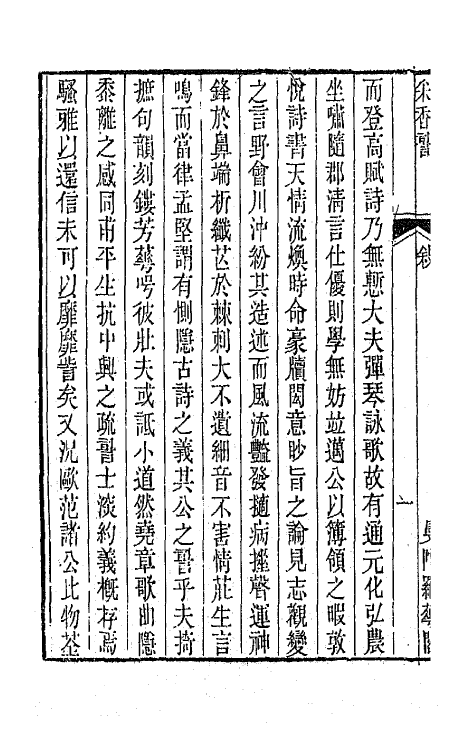 采香䛐
敘
一
曼陀羅華閣
而登高賦詩乃無慙大夫彈琴詠歌故有通元化弘農
坐嘯隨郡清言仕優則學無妨竝邁公以簿領之暇敦
悅詩書天情流煥時命豪牘閎意眇旨之論見志觀變
之言野會川沖紛其造述而風流豔發擿病挫聲運神
鋒於鼻端析纖芒於棘刺大不遺細音不害情莊生言
鳴而當律孟堅謂有惻隱古詩之義其公之䛐乎夫掎
摭句韻刻鏤芳華咢彼壯夫或詆小道然堯章歌曲隱
黍離之感同甫平生抗中興之疏䛐士淡約義槪存焉
騷雅以還信未可以靡靡訾矣又況歐范諸公比物荃